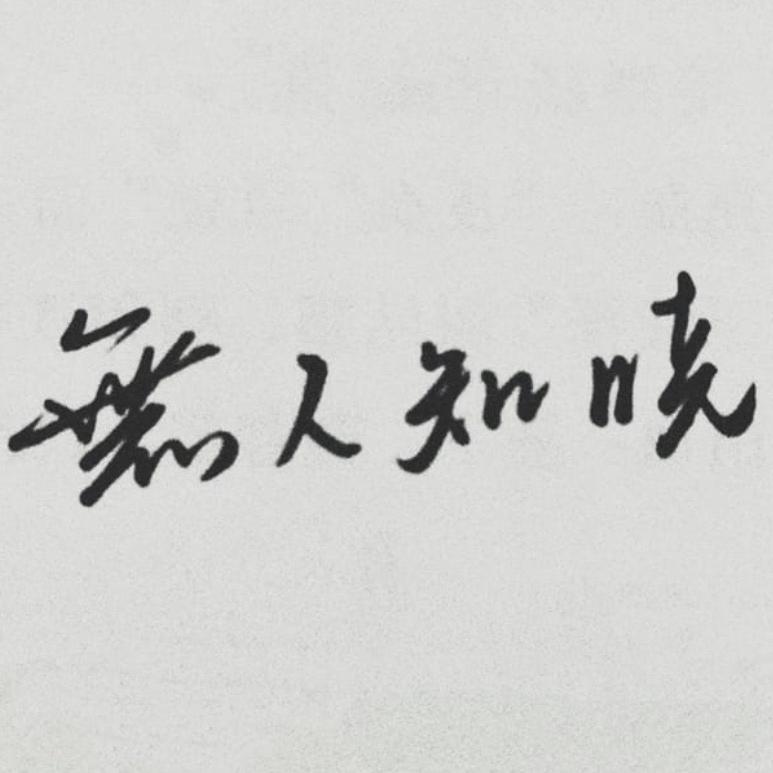 無人知曉